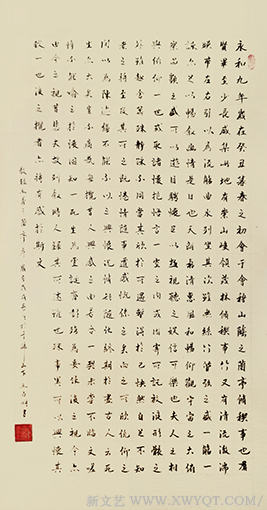 永和九年歲在癸丑暮春之初會于會稽山陰之蘭亭脩稧事也群
賢畢至少長咸集此地有崇山峻領茂林脩竹又有清流激湍
暎帶左右引以為流觴曲水列坐其次雖無絲竹管弦之盛一觴一
詠亦足以暢敘幽情是日也天朗氣清惠風和暢仰觀宇宙之大俯
察品類之盛所以遊目騁懷足以極視聽之娛信可樂也夫人之相
與俯仰一世或取諸懷抱悟言一室之內或因寄所託放浪形骸之
外雖趣舍萬殊靜躁不同當其欣於所遇暫得於己快然自足不知
老之將至及其所之既惓情隨事遷感慨係之矣向之所欣俛仰之
間以為陳迹猶不能不以之興懷況脩短隨化終期於盡古人云死
生亦大矣豈不痛哉每攬昔人興感之由若合一契未嘗不臨文嗟
悼不能喻之於懷固知一死生為虛誕齊彭殤為妄作後之視今亦
由今之視昔悲夫故列敘時人錄其所述雖世殊事異所以興懷其
致一也後之攬者亦將有感於斯文
新文艺 WWW.XWYQT.COM